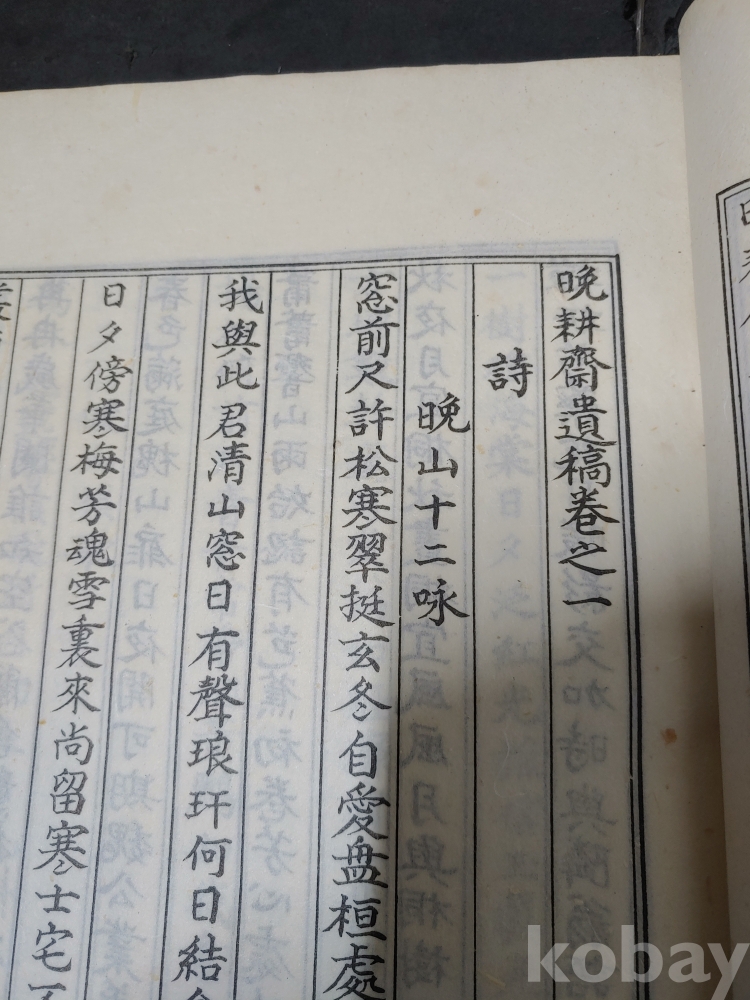 晩耕齋遺稿卷之一
詩
晩山十二咏
窓前尺許松寒翠挺玄冬自愛盘桓處
我與此君清山窓日有聲琅玕何日結
日夕傍寒梅芳魂雪裏來尚留寒士宅
kobay